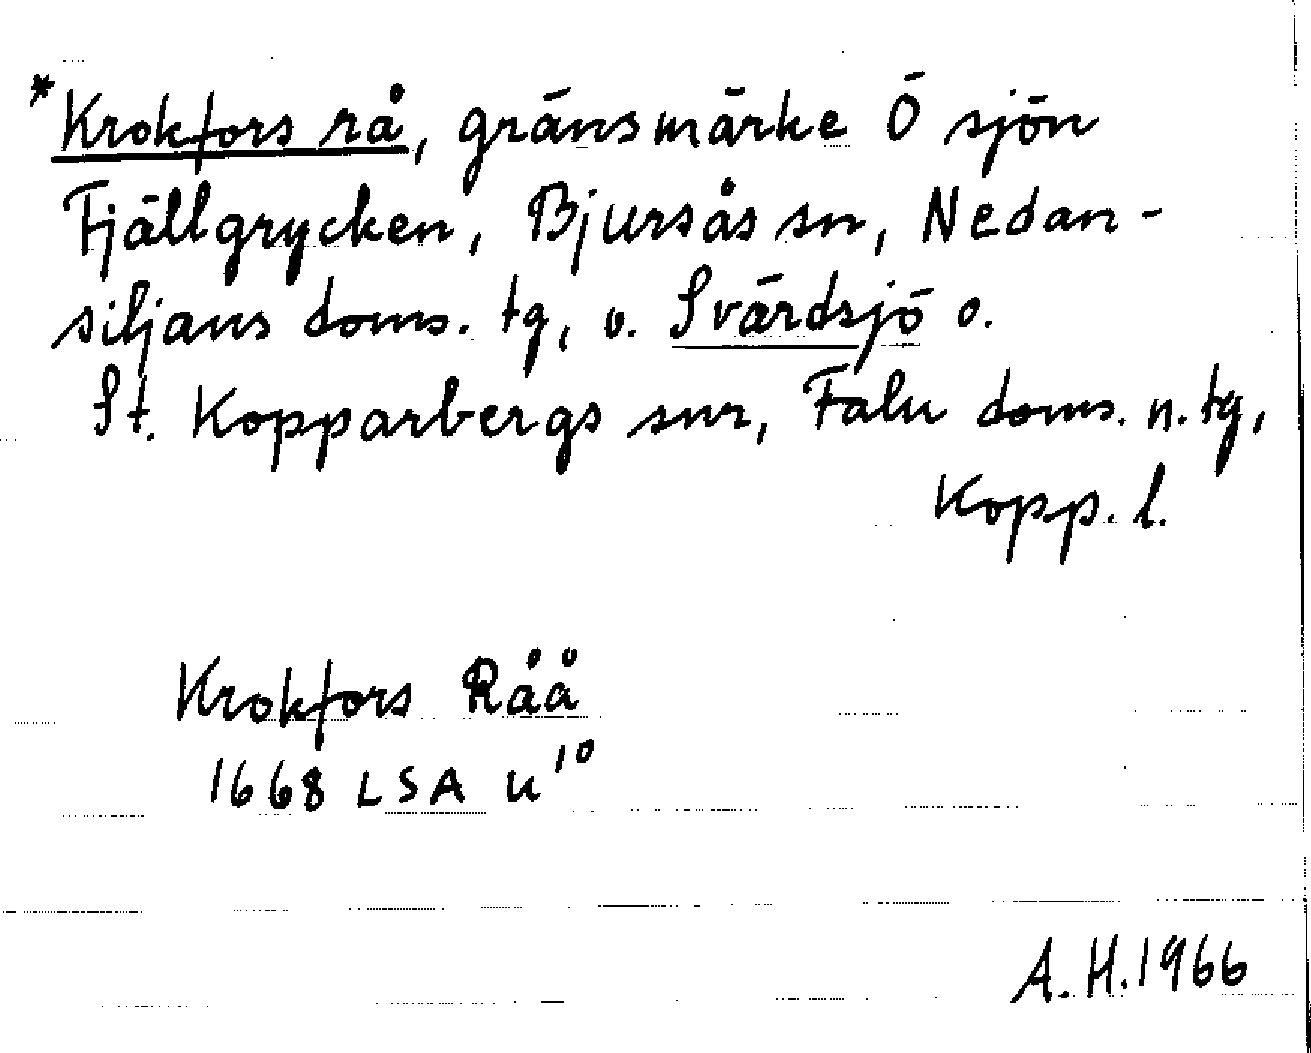 *Krokfors rå, gränsmärke Ö sjön
Fjällgrycken, Bjursås sn, Nedan-
siljans doms. tg, o. Svärdsjö o.
St. Kopparbergs snr, Falu doms. n. tg,
Kopp. l.
Krokfors Råå
1668 LSA U¹⁰
A.H.1966